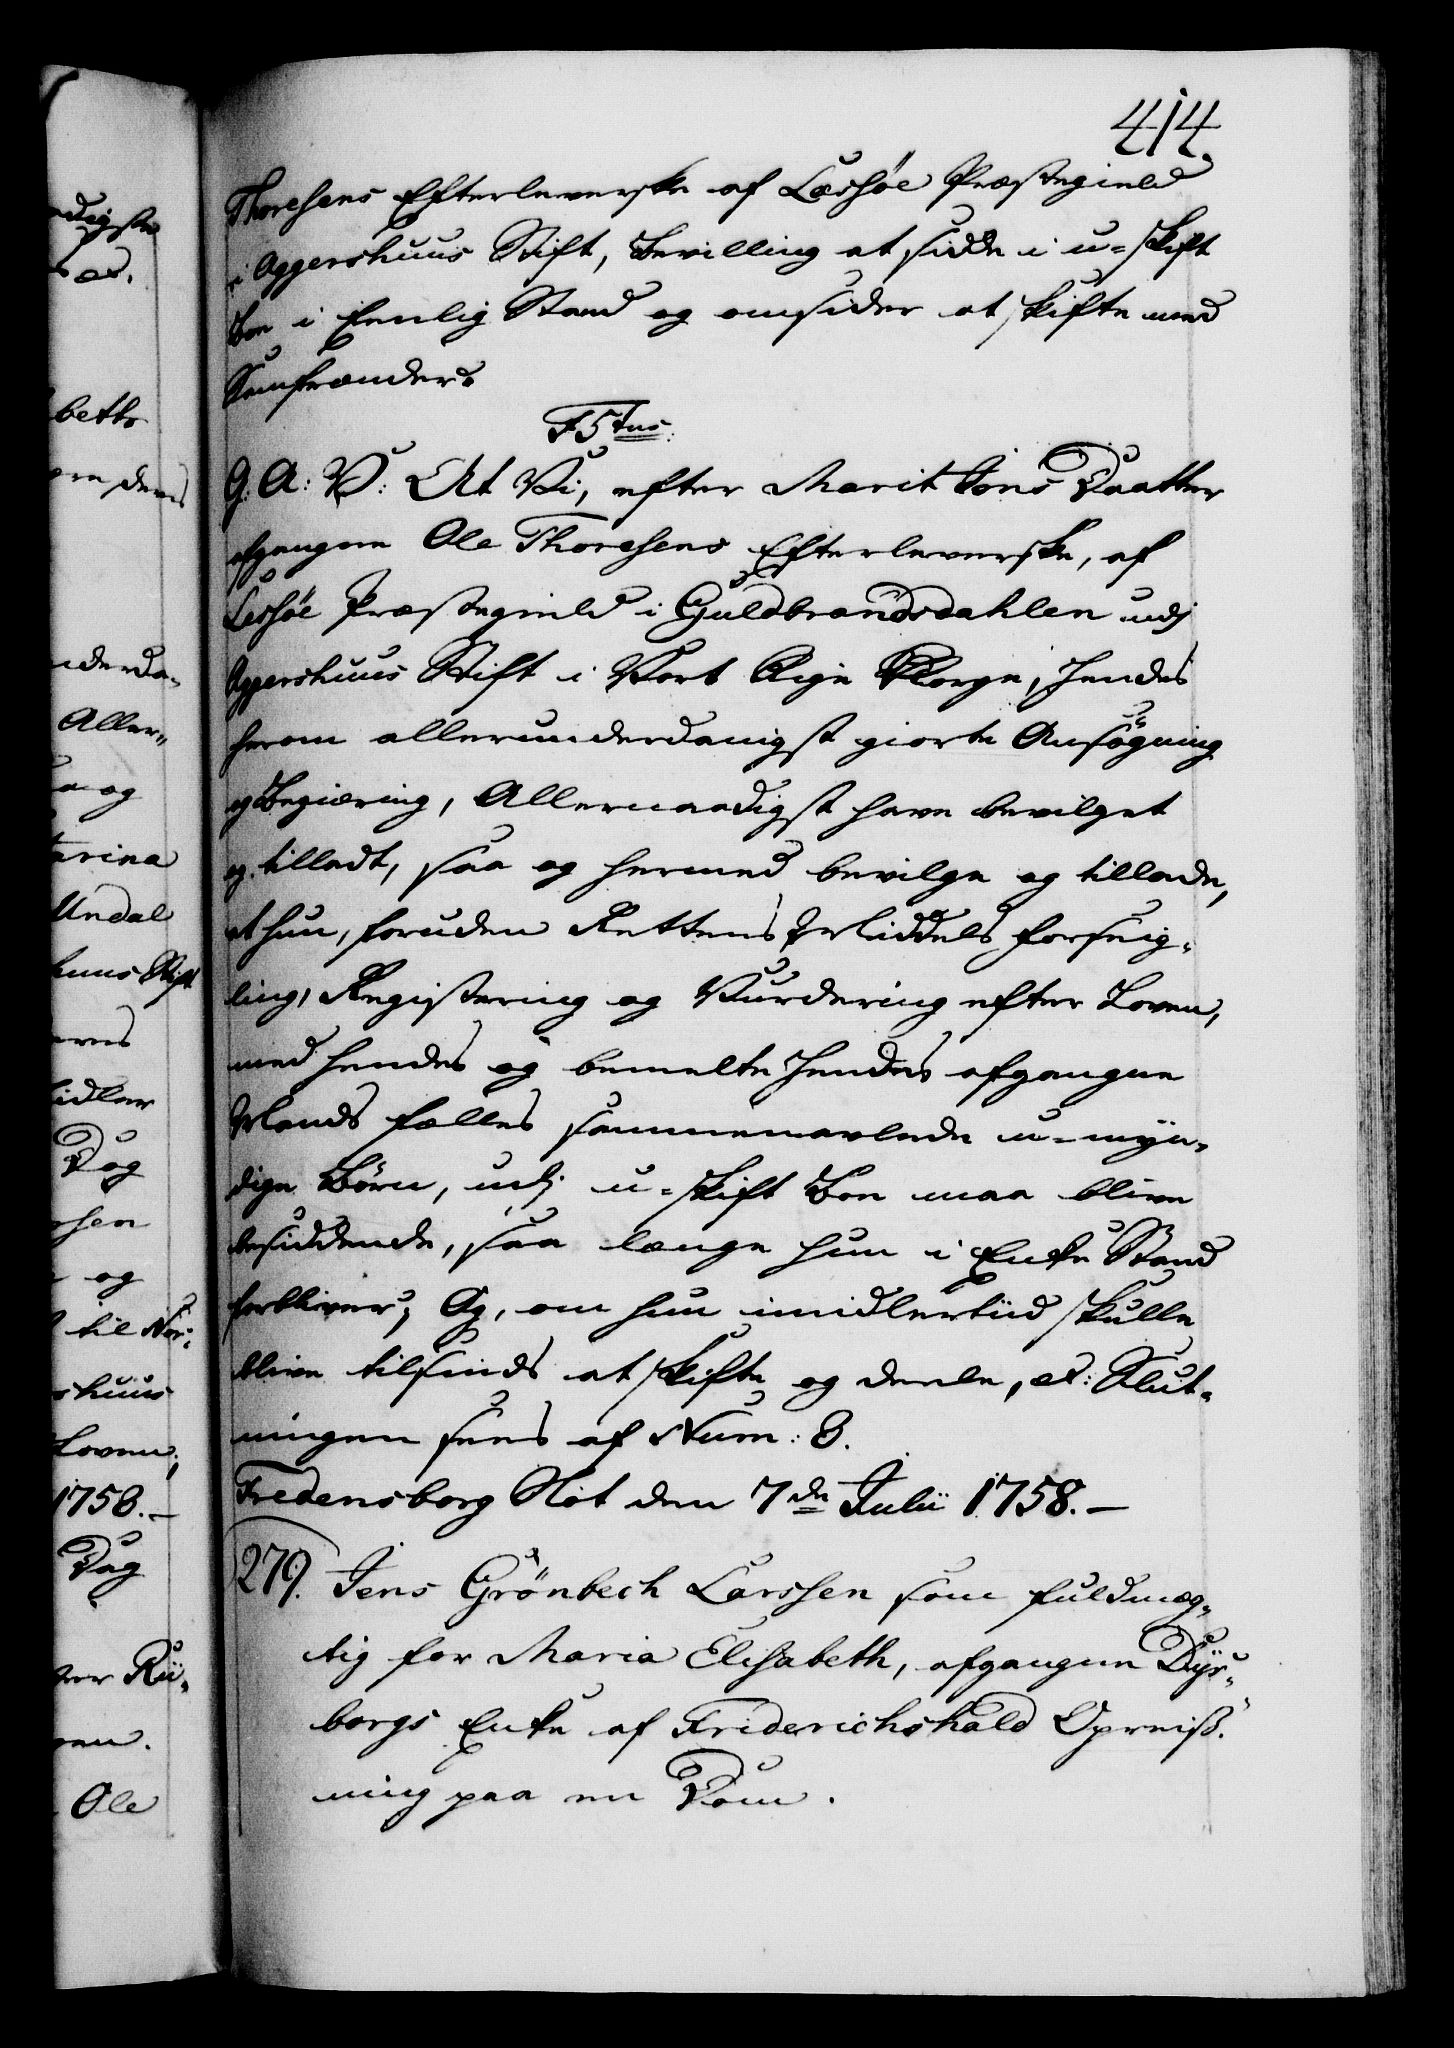 414
Thoresens Efterleverske af Læssøe Præstegield
i Aggershuus Stift, Bevilling at sidde i u-skift
Boe i Eenlig Stand og omsider at skifte med
Samfrænder.
F5tus:
G: A: V: At Vi, efter Marit Jons Daatter
afgangne Ole Thoresens Efterleverske, af
Lessøe Præstegield i Guldbrandsdahlen udj
Aggershuus Stift i Vort Rige Norge, hendes
herom allerunderdanigst giorte Ansøgning
og Begiæring, Allernaadigst have bevilget
og tilladt, saa og hermed bevilge og tillade,
at hun, foruden Rettens Middels forseig-
ling, Registering og Vurdering efter Loven,
med hendes og bemelte hendes afgangne
Mands fælles sammenavlede u-myn-
dige Børn, udj u-skift Boe maa blive
besiddende, saa længe hun i Enke Stand
forbliver; Og, om hun imidlertiid skulle
blive tilsinds at skifte og deele, et: Slut-
ningen sees af Num: 8.
Fredensborg Slot den 7de Julii 1758.-
279. Jens Grønbech Larssen som fuldmæg-
tig for Maria Elisabeth, afgangne Dys-
borgs Enke af Friderichshald Opreiß-
ning paa en Dom.
beth
Aller-
og
arina
Undal
huus Stift
Dag
og
til Nor-
shuus
Loven,
1758.-
Dag
Ole